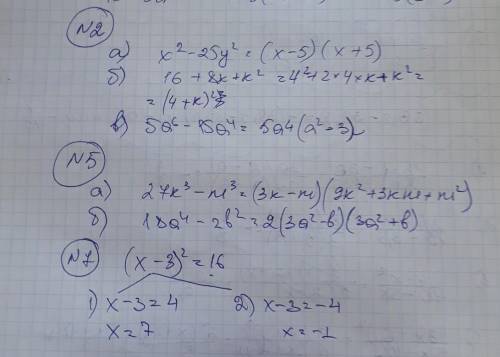 N2
а) x² - 25y² = (x-5)(x+5)
б) 16 + 8к + к² = 4² + 2×4×к + к² =
= (4+к)²
в) 5a⁶ - 15a⁴ = 5a⁴(a² - 3)
N5
а) 27к³ - m³ = (3к - m)(9к² + 3кm + m²)
б) 18a⁴ - 2b² = 2(3a² - b)(3a² + b)
N7 (x - 3)² = 16
1) x - 3 = 4 2) x - 3 = -4
x = 7 x = -1